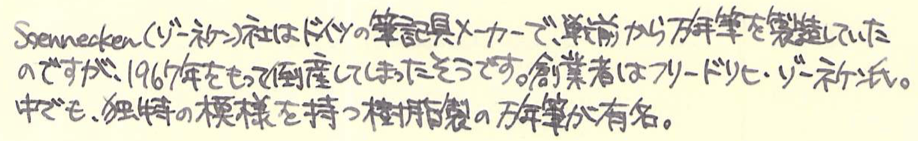 Soennecken(ゾーネケン)社はドイツの筆記具メーカーで、戦前から万年筆を製造していた
のですが、1967年をもって倒産してしまったそうです。創業者はフリードリヒ・ゾーネケン氏。
中でも、独特の模様を持つ樹脂製の万年筆が有名。